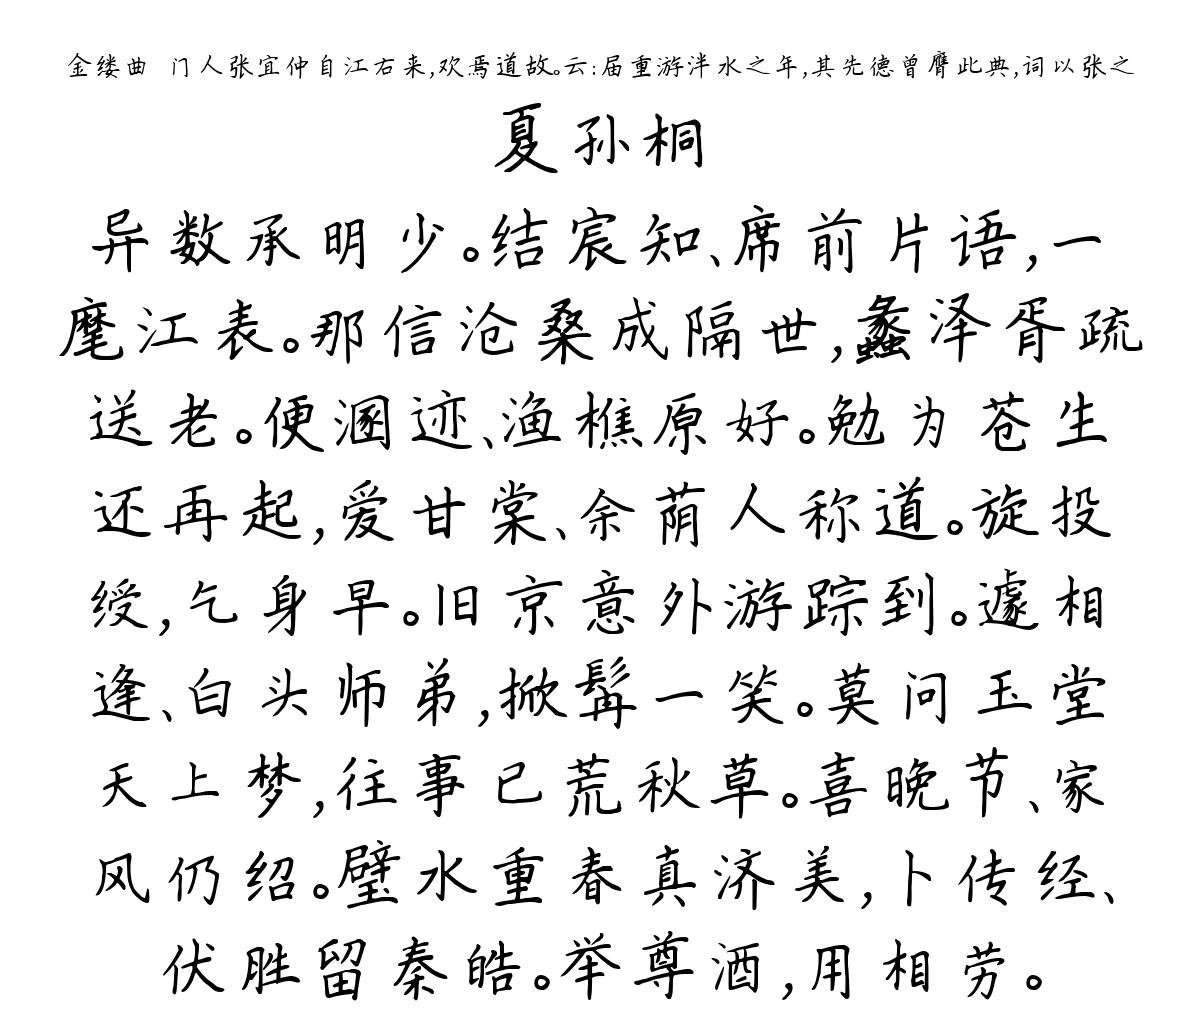 金缕曲 门人张宜仲自江右来,欢焉道故。云:届重游泮水之年,其先德曾膺此典,词以张之
夏孙桐
异数承明少。结宸知、席前片语,一
麾江表。那信沧桑成隔世,蠡泽胥疏
送老。便溷迹、渔樵原好。勉为苍生
还再起,爱甘棠、余荫人称道。旋投
绶,乞身早。旧京意外游踪到。遽相
逢、白头师弟,掀髯一笑。莫问玉堂
天上梦,往事已荒秋草。喜晚节、家
风仍绍。璧水重春真济美,卜传经、
伏胜留秦皓。举尊酒,用相劳。